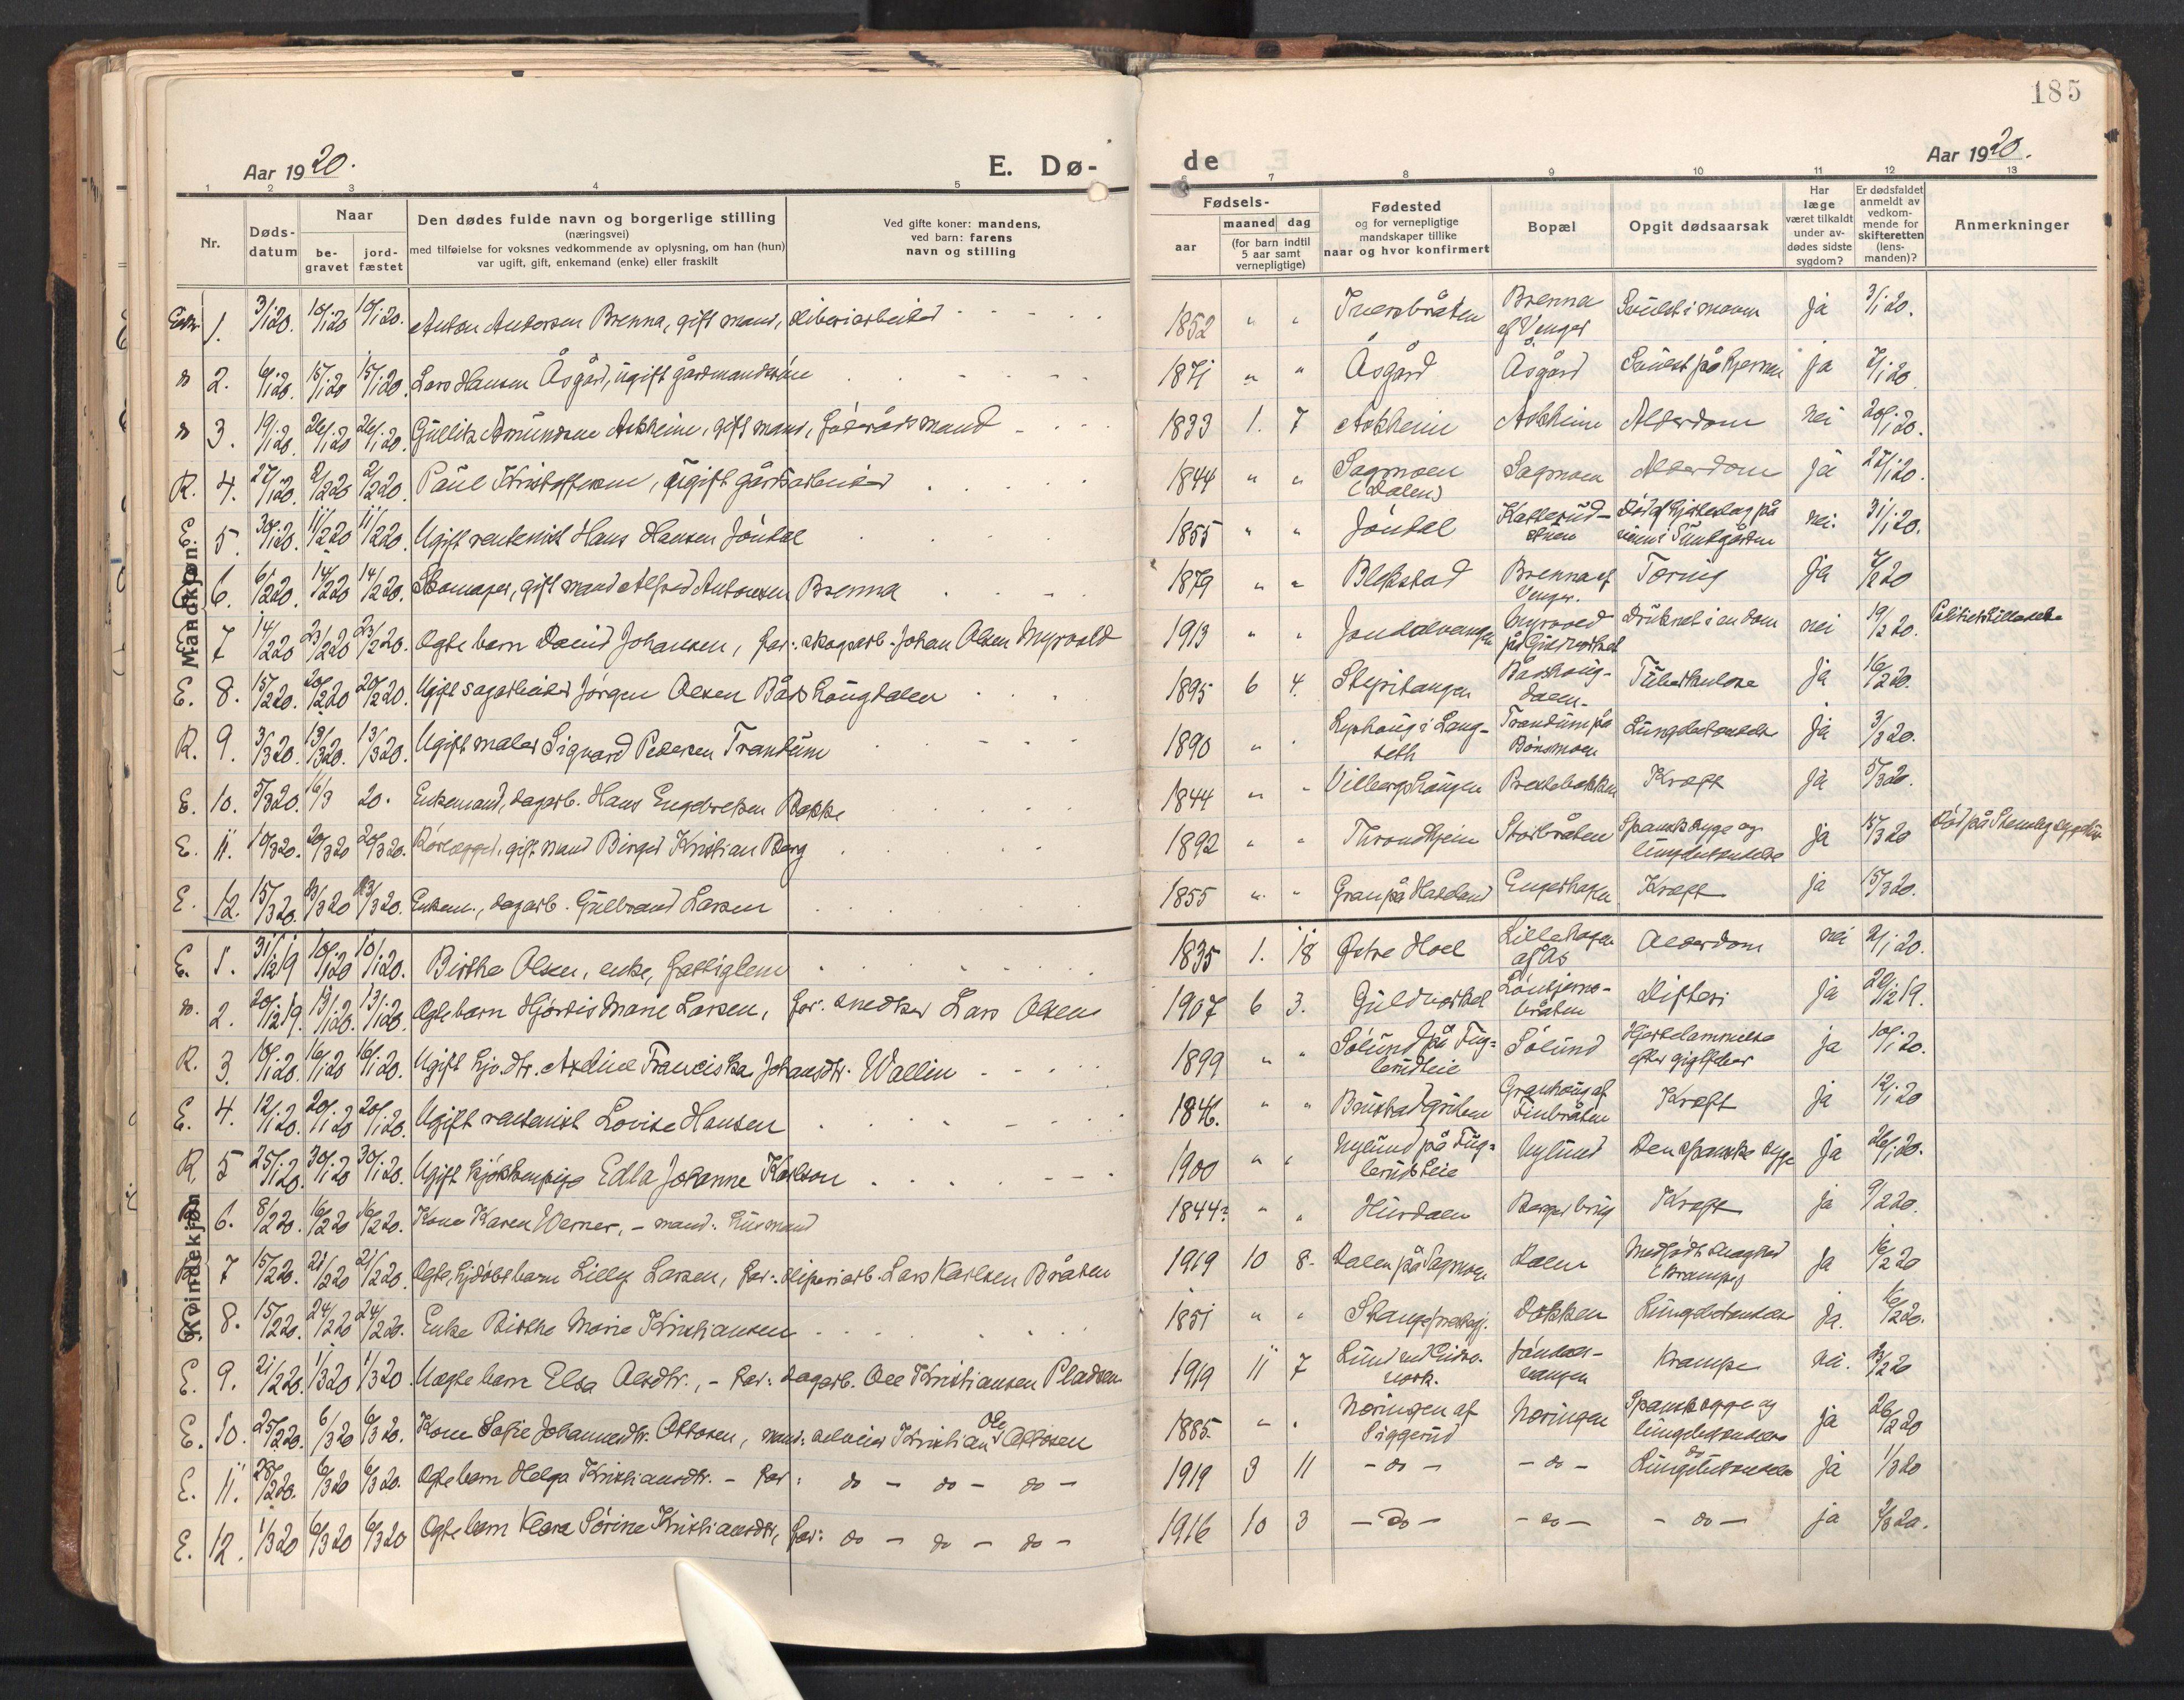 185
Aar 1920.
E. Dø-
de
Aar 1920.
1 2 3 4 5 6 7 8 9 10 11 12 13
Nr.
Døds-
datum
Naar
be-
gravet
jord-
fæstet
Den dødes fulde navn og borgerlige stilling
(næringsvei)
med tilføielse for voksnes vedkommende av oplysning, om han (hun)
var ugift, gift, enkemand (enke) eller fraskilt
Ved gifte koner: mandens,
ved barn: farens
navn og stilling
Fødsels-
aar
maaned dag
(for barn indtil
5 aar samt
vernepligtige)
Fødested
og for vernepligtige
mandskaper tillike
naar og hvor konfirmert
Bopæl
Opgit dødsaarsak
Har
læge
været tilkaldt
under av-
dødes sidste
sygdom?
Er dødsfaldet
anmeldt av
vedkom-
mende for
skifteretten
(lens-
manden)?
Anmerkninger
Mandkjøn
1. 3/1 20. 10/1 20 10/1 20. Anton Andersen Brenna, gift mand, sliberiarbeider 1852 " " Brenna af Venger ja 3/1 20.
2. 6/1 20. 15/1 20 15/1 20. Lars Hansen Åsgård, ugift gårdmandssøn 1871 " " Åsgård Åsgård ja 7/1 20.
3. 19/1 20. 26/1 20 26/1 20. Gullik Amundsen Askheim, gift mand, føderådsmand 1833 1. 7 Askheim Askheim Alderdom nei 20/1 20.
R. 4. 27/1 20. 2/2 20 2/2 20. Paul Kristoffersen, ugift gårdsarbeider 1844 " " Sagmoen (Dalen) Sagmoen Alderdom ja 27/1 20.
E. 5. 30/1 20. 11/2 20 11/2 20. Ugift rentenist Hans Hansen Jøndal 1855 " " Jøndal nei. 31/1 20.
E. 6. 6/2 20. 14/2 20 14/2 20. Skomager, gift mand Alfred Antonsen Brenna 1879 " " Blekstad Brenna af Venger. Tæring ja 7/2 20
7 14/2 20 23/2 20 23/2 20. Ægte barn David Johansen, far: skogsarb. Johan Olsen Myrvold 1913 " " Jøndalvangen Myrvold på Guldverket Druknet i en dam nei 19/2 20.
E. 8. 15/2 20. 20/2 20 20/2 20. Ugift sagarbeider Jørgen Olsen Bårdshaugdalen 1895 6 4. Stensbangen Bårdshaug-dalen. Tuberkulose ja 16/2 20.
R. 9. 3/3 20. 13/3 20. 13/3 20. Ugift maler Sigvard Pedersen Trandum 1890 " " Trandum på Bønsmoen Lungebetændelse ja 3/3 20.
E. 10. 5/3 20. 16/3 20. Enkemand, dagarb. Hans Engebretsen Bakke 1844 " " Bræstebakken Kræft ja 5/3 20.
E. 11. 10/3 20. 20/3 20 20/3 20. Rørlægger, gift mand Birger Kristian Berg 1892 " " Throndhjem Storbråten Spansk syge og lungebetændelse ja 15/3 20
E. 12. 15/3 20. 23/3 20 23/3 20. Enkem., dagarb. Gulbrand Larsen 1855 " " Gran på Hadeland Engerhagen Kræft ja 15/3 20.
Kvindekjøn
E. 1. 31/12 19 10/1 20 10/1 20. Birthe Olsen, enke, fattiglem 1835 1. 18 Østre Hoel Lillehagen af Ås Alderdom nei 2/1 20.
2. 20/12 19. 13/1 20. 13/1 20. Ægte barn Hjørdis Marie Larsen, far: snedker Lars Olsen 1907 6 3. Guldverket Difteri ja 20/12 19.
R. 3. 10/1 20. 16/1 20. 16/1 20. Ugift hjv. dtr. Axeline Franciska Johansdtr. Wallin 1899 " " Sølund på Fug-lerudeie Sølund Hjertelammelse efter gigtfeber ja 10/1 20.
E. 4. 12/1 20. 20/1 20 20/1 20. Ugift rentenist Lovise Hansen 1846. " " Granhaug af Finbråten Kræft ja 12/1 20
R. 5 25/1 20. 30/1 20 30/1 20. Ugift kjøkkenpige Edla Johanne Karlson 1900 " " Nylund på Fug-lerudseie Nylund Den spanske syge ja 26/1 20.
6. 8/2 20. 16/2 20 16/2 20. Kone Karen Werner, - mand: husmand 1844? " " Hurdalen Kræft ja 9/2 20.
7 15/2 20. 21/2 20 21/2 20. Ægte, hjdøbt barn Lilly Larsen, far: sliperiarb. Lars Karlsen Bråten 1919 10 8. Dalen på Sagmoen Dalen Medfødt svaghed (krampe) ja 16/2 20
8. 15/2 20. 24/2 20 24/2 20. Enke Birthe Marie Kristiansen 1851 " " Stange prestegj. Dokken Lungebetændelse ja. 16/2 20.
E. 9. 21/2 20. 1/3 20 1/3 20. Uægte barn Elsa Olsdtr., - far: dagarb. Ole Kristiansen Pladsen 1919 11 7 Krampe nei. 23/2 20
E. 10. 25/2 20. 6/3 20 6/3 20. Kone Sofie Johannesdtr. Ottosen, mand: arbeider Kristian Ole Ottosen 1885. " " Næringen af Siggerud Næringen Spansksyge og lungebetændelse ja 26/2 20
E. 11. 28/2 20. 6/3 20 6/3 20. Ægte barn Helga Kristiansdtr. - far: do - do - do - 1919 3 11 - do - - do - do Lungebetændelse ja 1/3 20
E. 12. 1/3 20 6/3 20 6/3 20 Ægte barn Klara Sørine Kristiansdtr, far: do - do - do - 1916 10 3 - do - - do - - do - ja 2/3 20.